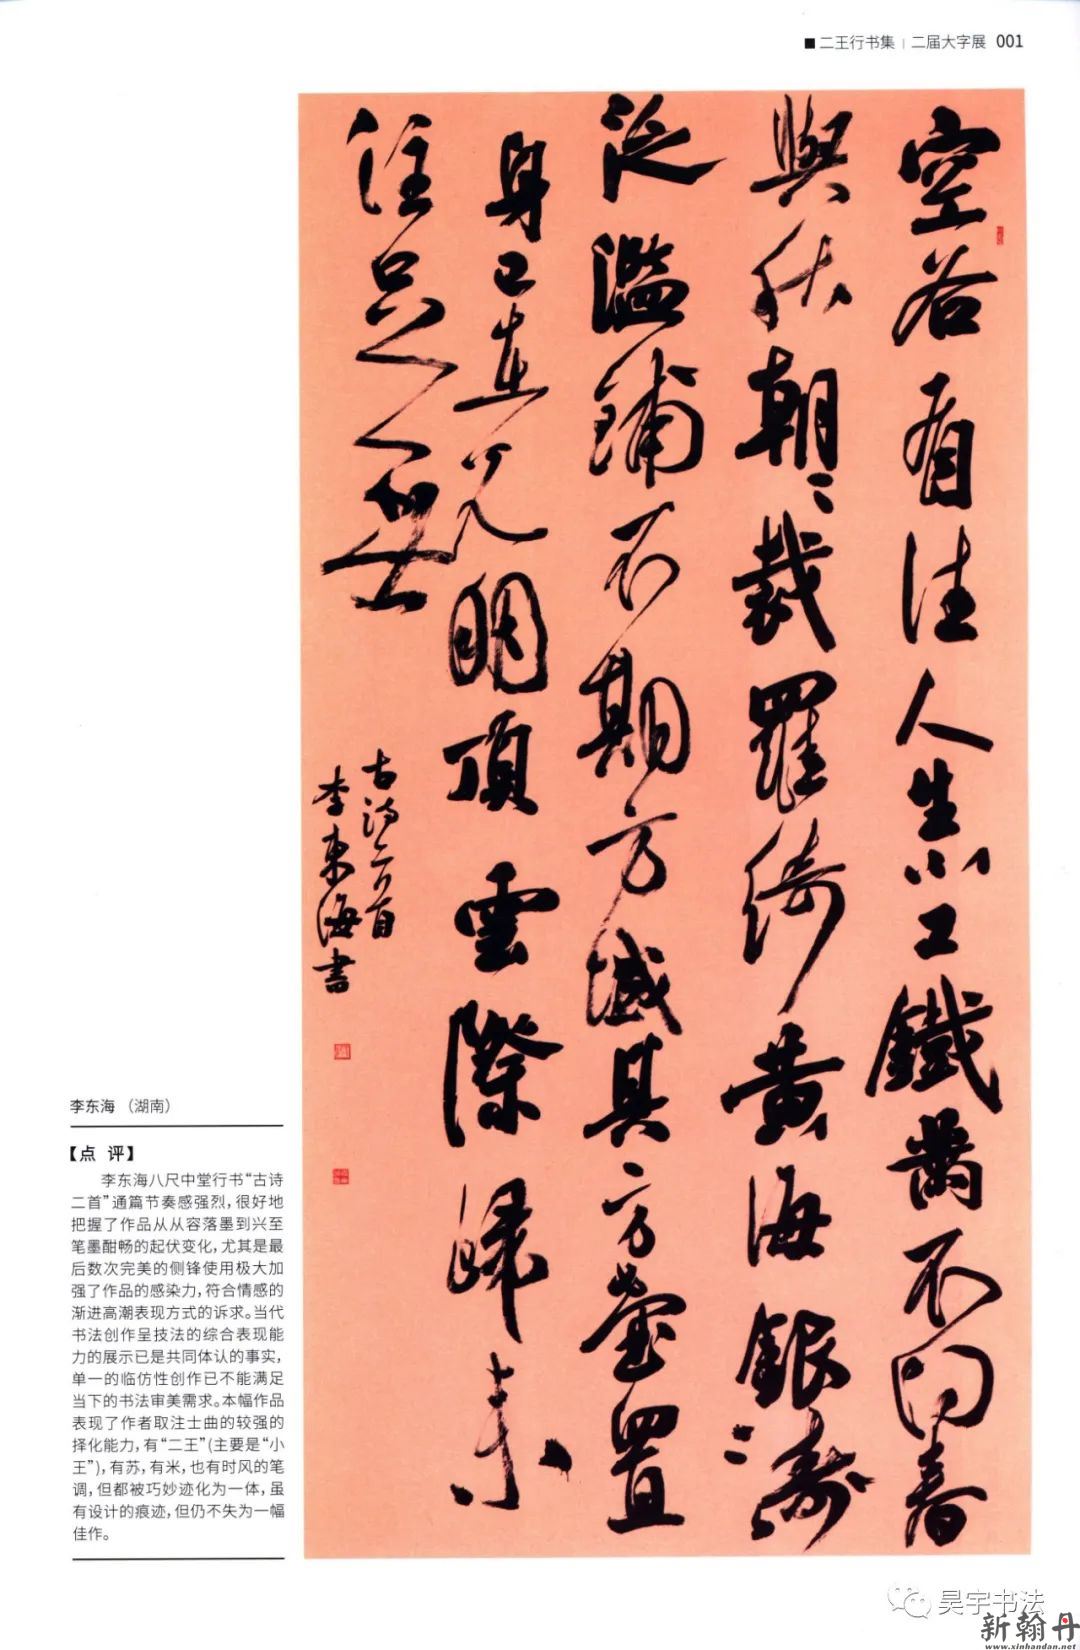 ■二王行书集 | 二届大字展 001
空谷有佳人生小工鐵齒不问春
與秋朝〻裁羅綺黄海銀濤
泛濫鋪不期方域具方臺置
身已在光明頂雲際歸来
往
古诗二首
李東海書
李东海 （湖南）
【点 评】
李东海八尺中堂行书“古诗
二首”通篇节奏感强烈，很好地
把握了作品从从容落墨到兴至
笔墨酣畅的起伏变化，尤其是最
后数次完美的侧锋使用极大加
强了作品的感染力，符合情感的
渐进高潮表现方式的诉求。当代
书法创作呈技法的综合表现能
力的展示已是共同体认的事实，
单一的临仿性创作已不能满足
当下的书法审美需求。本幅作品
表现了作者取注士曲的较强的
择化能力，有“二王”(主要是“小
王”)，有苏，有米，也有时风的笔
调，但都被巧妙迹化为一体，虽
有设计的痕迹，但仍不失为一幅
佳作。
昊宇书法
新翰丹
www.xinhandan.net